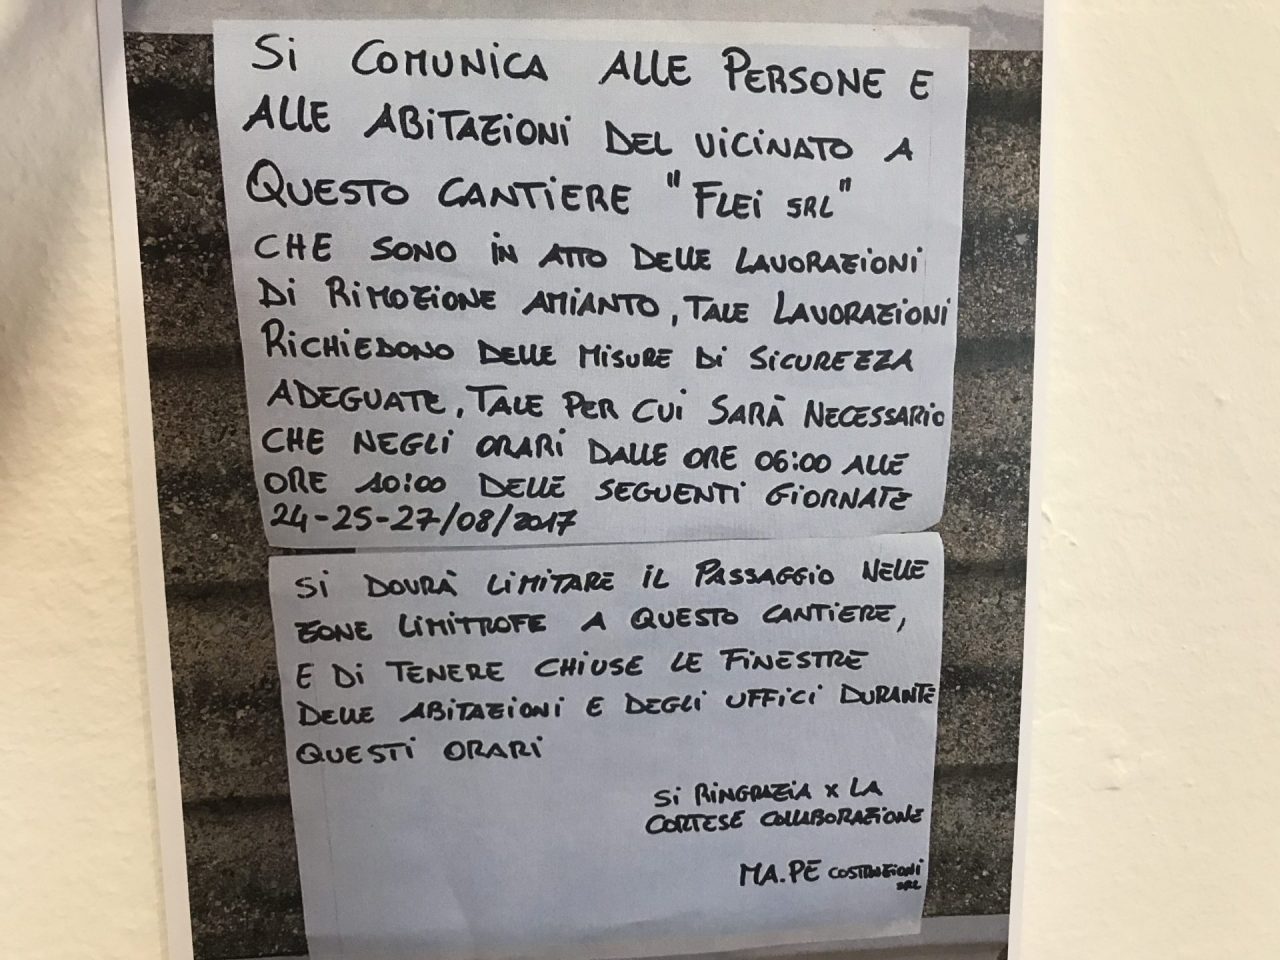 Si COMUNICA ALLE PERSONE E
ALLE ABiTAZiONi DEL ViCiNATO A
QUESTO CANTiERE "FLEi SRL"
CHE SONO iN ATTO DELLE LAVORAZiONi
Di RiMOZiONE AMiANTO, TALE LAVORAZiONi
RiCHiEDONO DELLE MiSURE Di SiCUREZZA
ADEGUATE, TALE PER CUi SARÀ NECESSARiO
CHE NEGLi ORARi DALLE ORE 06:00 ALLE
ORE 10:00 DELLE SEGUENTi GiORNATE
24-25-27/08/2017
Si DOVRÀ LiMiTARE iL PASSAGGiO NELLE
ZONE LiMiTROFE A QUESTO CANTiERE,
E Di TENERE CHiUSE LE FiNESTRE
DELLE ABiTAZiONi E DEGLi UFFiCi DURANTE
QUESTi ORARi
Si RiNGRAZiA x LA
CORTESE COLLABORAZiONE
MA.PE COSTRUZiONi
SRL